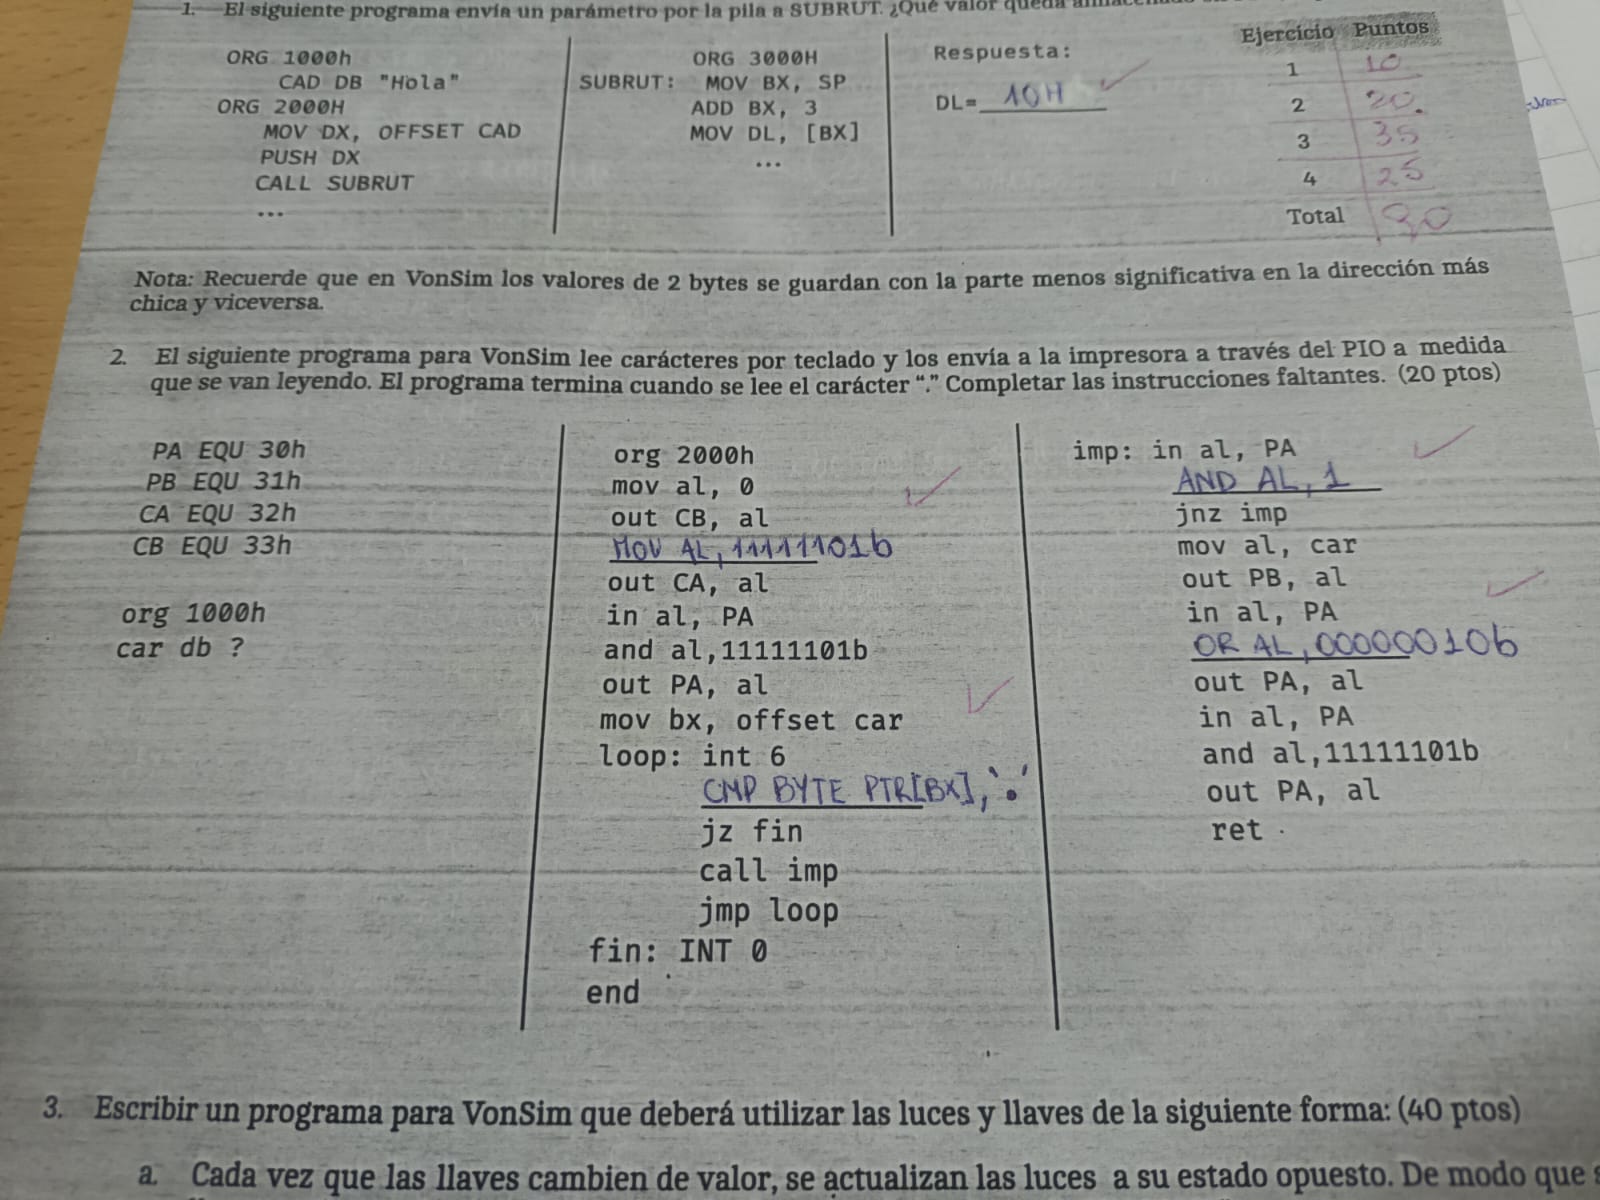 1. El siguiente programa envía un parámetro por la pila a SUBRUT. ¿Qué valor queda
ORG 1000h
CAD DB "Hola"
ORG 2000H
MOV DX, OFFSET CAD
PUSH DX
CALL SUBRUT
...
ORG 3000H
SUBRUT: MOV BX, SP
ADD BX, 3
MOV DL, [BX]
...
Respuesta:
DL= 10H
Ejercicio Puntos
1 10
2 20.
3 35
4 25
Total 90
Nota: Recuerde que en VonSim los valores de 2 bytes se guardan con la parte menos significativa en la dirección más
chica y viceversa.
2. El siguiente programa para VonSim lee carácteres por teclado y los envía a la impresora a través del PIO a medida
que se van leyendo. El programa termina cuando se lee el carácter “.” Completar las instrucciones faltantes. (20 ptos)
PA EQU 30h
PB EQU 31h
CA EQU 32h
CB EQU 33h
org 1000h
car db ?
org 2000h
mov al, 0
out CB, al
MOV AL, 11111101b
out CA, al
in al, PA
and al,11111101b
out PA, al
mov bx, offset car
loop: int 6
CMP BYTE PTR[BX], '.'
jz fin
call imp
jmp loop
fin: INT 0
end
imp: in al, PA
AND AL, 1
jnz imp
mov al, car
out PB, al
in al, PA
OR AL, 00000010b
out PA, al
in al, PA
and al,11111101b
out PA, al
ret
3. Escribir un programa para VonSim que deberá utilizar las luces y llaves de la siguiente forma: (40 ptos)
a. Cada vez que las llaves cambien de valor, se actualizan las luces a su estado opuesto. De modo que